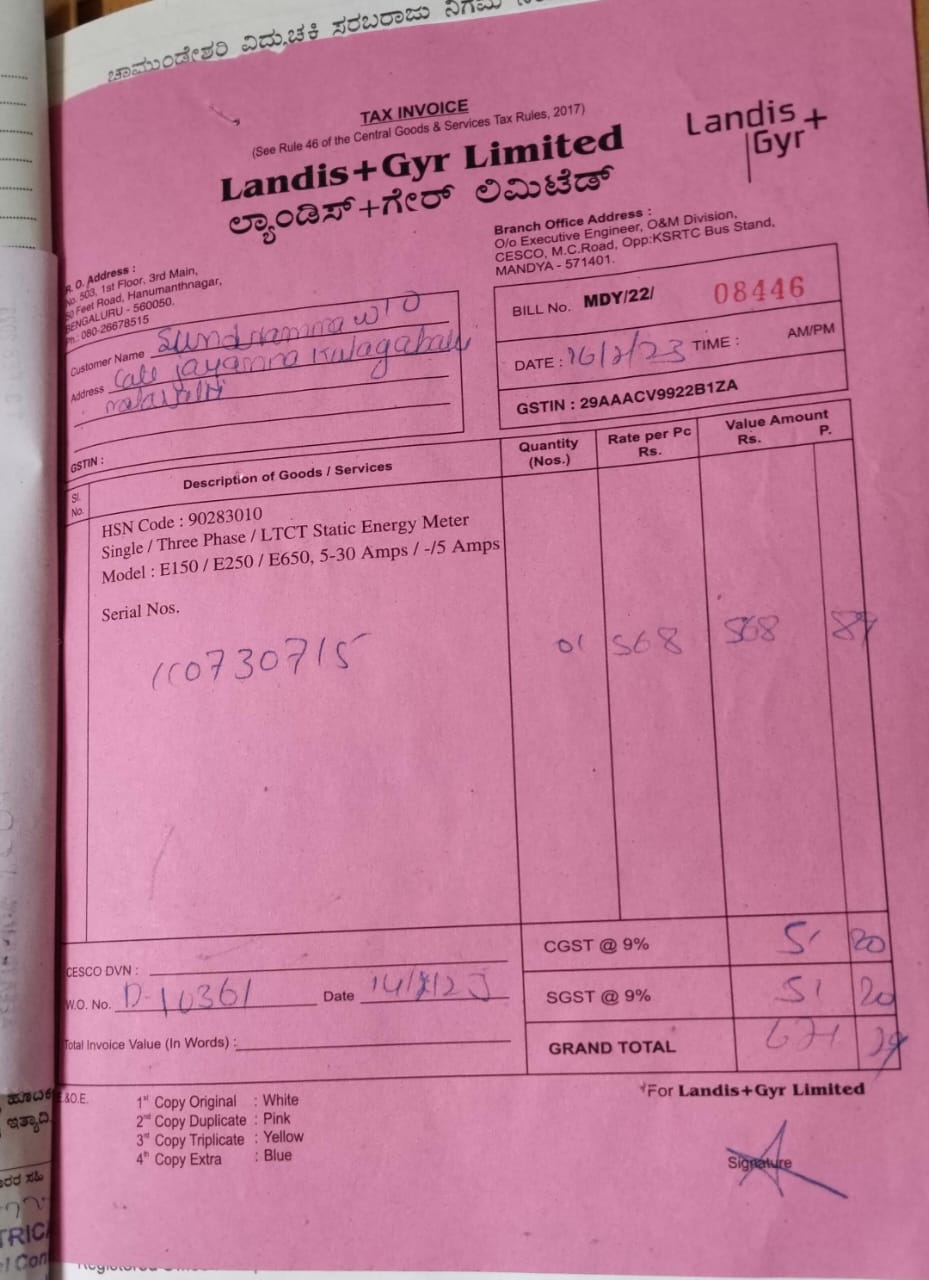 ಚಾಮುಂಡೇಶ್ವರಿ ವಿದ್ಯುಚ್ಛಕ್ತಿ ಸರಬರಾಜು ನಿಗಮ
TAX INVOICE
(See Rule 46 of the Central Goods & Services Tax Rules, 2017)
Landis+Gyr Limited
ಲ್ಯಾಂಡಿಸ್+ಗೇರ್ ಲಿಮಿಟೆಡ್
Landis+
Gyr
R. O. Address :
No. 503, 1st Floor, 3rd Main,
50 Feet Road, Hanumanthnagar,
BENGALURU - 560050.
Ph.: 080-26678515
Branch Office Address :
O/o Executive Engineer, O&M Division,
CESCO, M.C.Road, Opp:KSRTC Bus Stand,
MANDYA - 571401.
Customer Name W/O
Address
GSTIN :
BILL No. MDY/22/ 08446
DATE : 16/2/23 TIME : AM/PM
GSTIN : 29AAACV9922B1ZA
Sl. No. Description of Goods / Services Quantity (Nos.) Rate per Pc Rs. Value Amount Rs. P.
HSN Code : 90283010
Single / Three Phase / LTCT Static Energy Meter
Model : E150 / E250 / E650, 5-30 Amps / -/5 Amps
Serial Nos.
110730715 01 568 568 89
CGST @ 9% 51 20
CESCO DVN :
W.O. No. D-10361 Date 14/2/23
SGST @ 9% 51 20
Total Invoice Value (In Words) :
GRAND TOTAL 671 29
E.&O.E.
1st Copy Original : White
2nd Copy Duplicate : Pink
3rd Copy Triplicate : Yellow
4th Copy Extra : Blue
For Landis+Gyr Limited
Signature